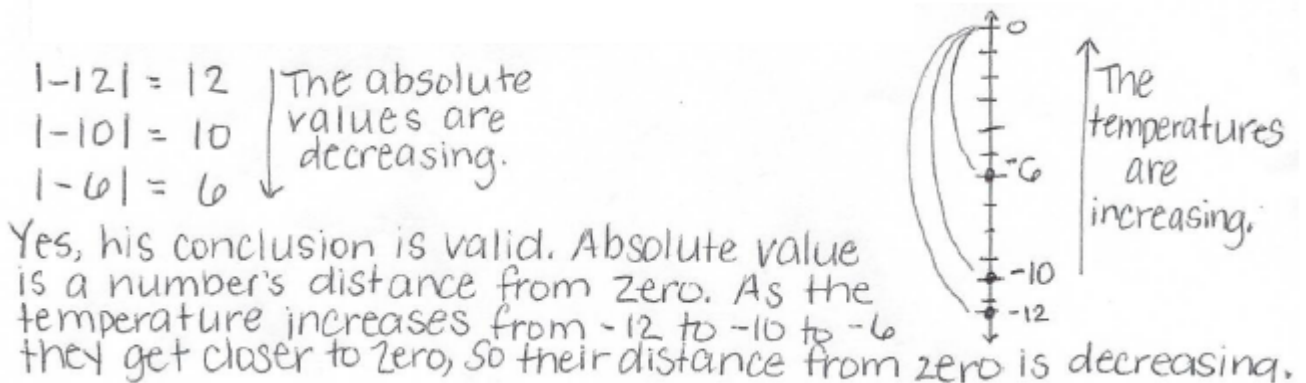 |-12| = 12
|-10| = 10
|-6| = 6
The absolute
values are
decreasing.
0
-6
-10
-12
The
temperatures
are
increasing.
Yes, his conclusion is valid. Absolute value
is a number's distance from zero. As the
temperature increases from -12 to -10 to -6
they get closer to zero, so their distance from zero is decreasing.